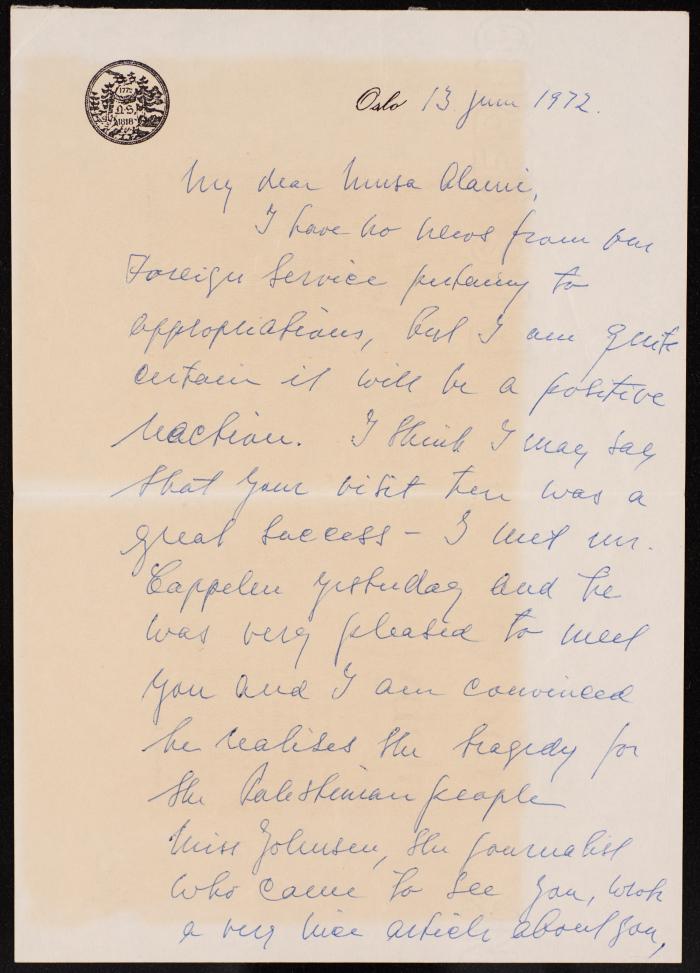 1772
N.S.
1818
Oslo 13 June 1972.
My dear Musa Alami,
I have no news from our
Foreign Service pertaining to
appropriations, but I am quite
certain it will be a positive
reaction. I think I may say
that your visit here was a
great success - I met mr.
Cappelen yesterday and he
was very pleased to meet
you and I am convinced
he realises the tragedy for
the Palestinian people
Miss Johnsen, the journalist
who came to see you, wrote
a very nice article about you,